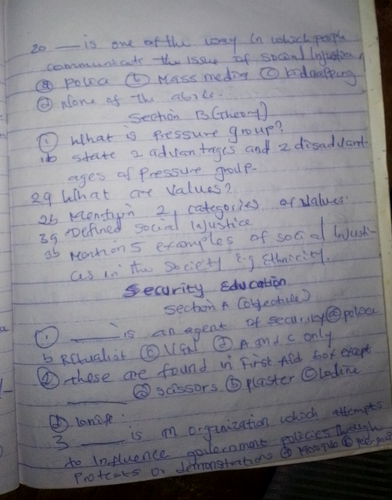 20 ___ is one of the way in which people
communicate the issue of social Injustice
(a) police (b) Mass media (c) kidnapping
(d) None of the above.
Section B (Theory)
(1) What is Pressure group?
1b state 2 advantages and 2 disadvant-
ages of Pressure group.
2a What are Values?
2b Mention 2 categories of Values.
3a Defined social Injustice
3b Mention 5 examples of social Injusti-
ces in the Society E.g Ethnicity.
Security Education
Section A (objective)
(1) ___ is an agent of security (a) police
b (c) (d) A and C only
(2) these are found in First Aid box except
___ (a) scissors (b) plaster (c) Iodine
(d)
3 ___ is an Organization which attempts
to Influence government policies through
Protests or demonstrations (a) Mosque (b)